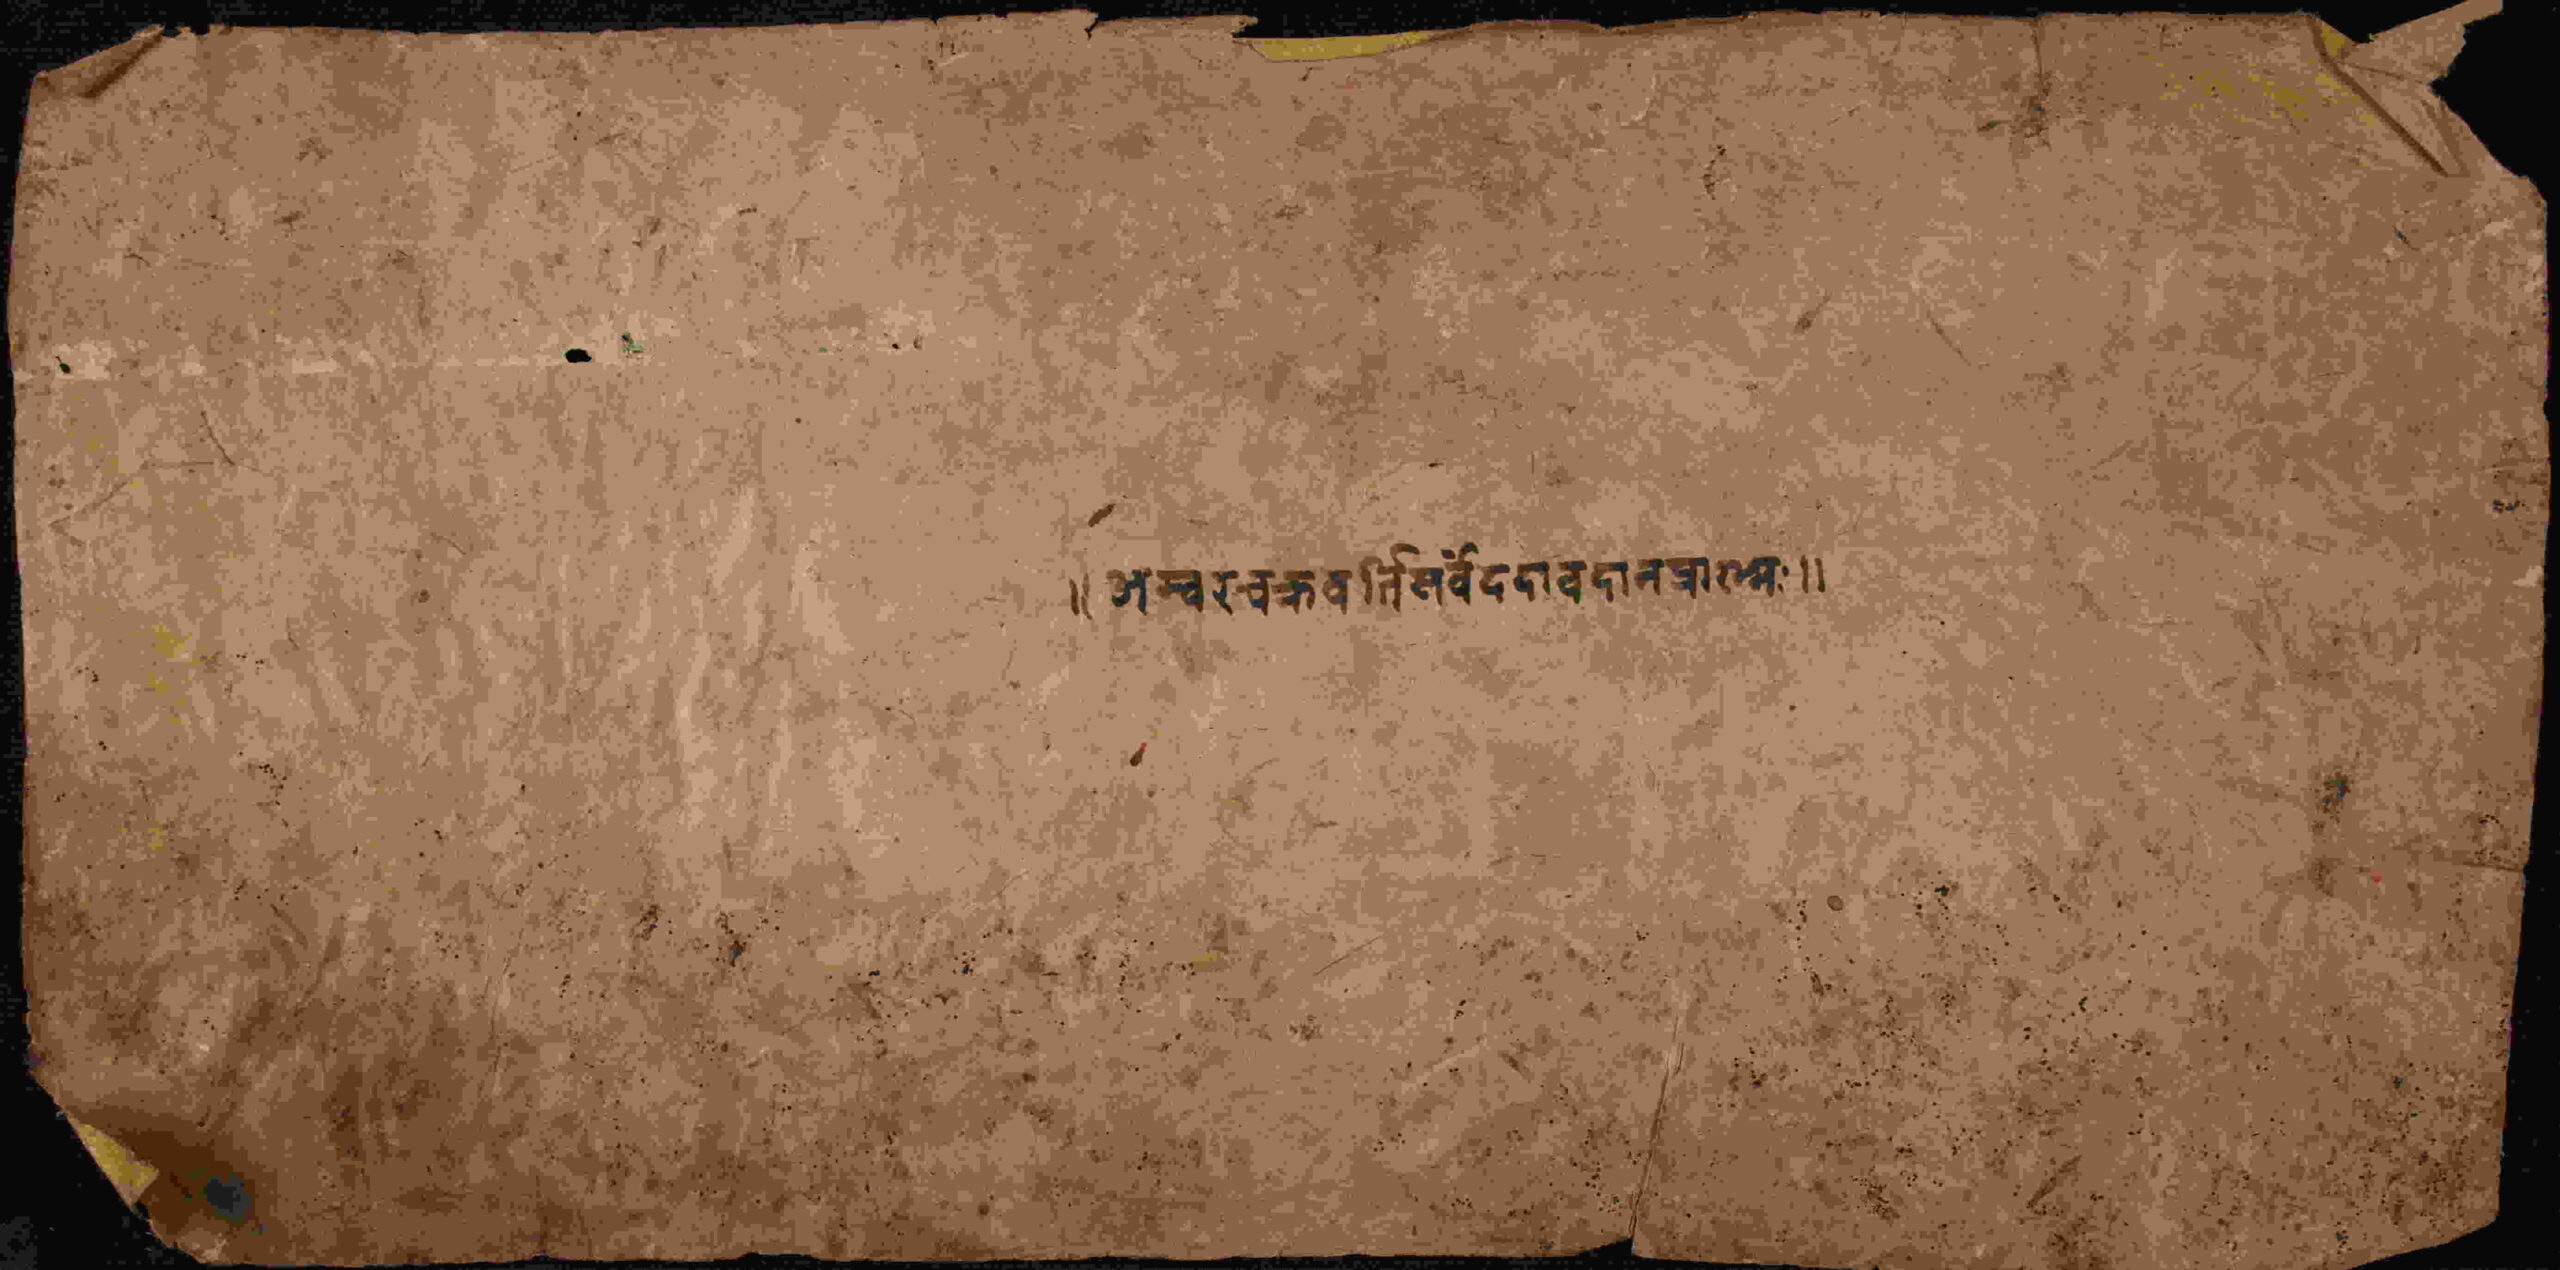 ॥ अम्वरचक्रवर्त्तिसर्वंददावदानप्रारम्भः ॥